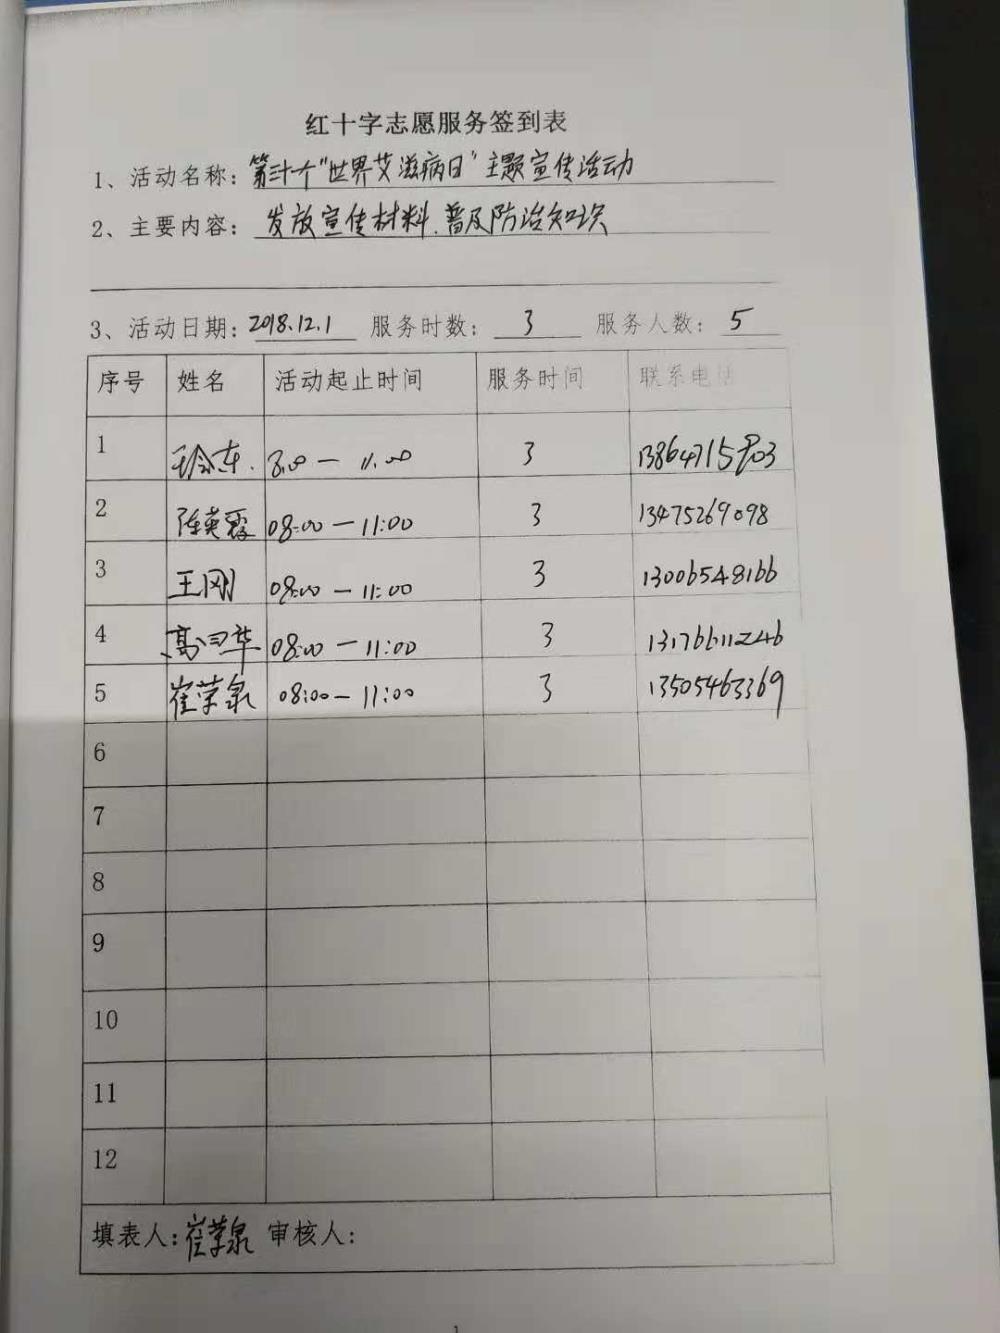 红十字志愿服务签到表
1、活动名称: 第三十个"世界艾滋病日"主题宣传活动
2、主要内容: 发放宣传材料、普及防治知识
3、活动日期: 2018.12.1 服务时数: 3 服务人数: 5
序号 姓名 活动起止时间 服务时间 联系电话
1 8.00 — 11.00 3
2 陈英霞 08:00 — 11:00 3 13475269098
3 王刚 08:00 — 11:00 3 13006548166
4 08:00 — 11:00 3 13176611246
5 崔荣泉 08:00 — 11:00 3 13505463369
6
7
8
9
10
11
12
填表人: 崔荣泉 审核人:
1